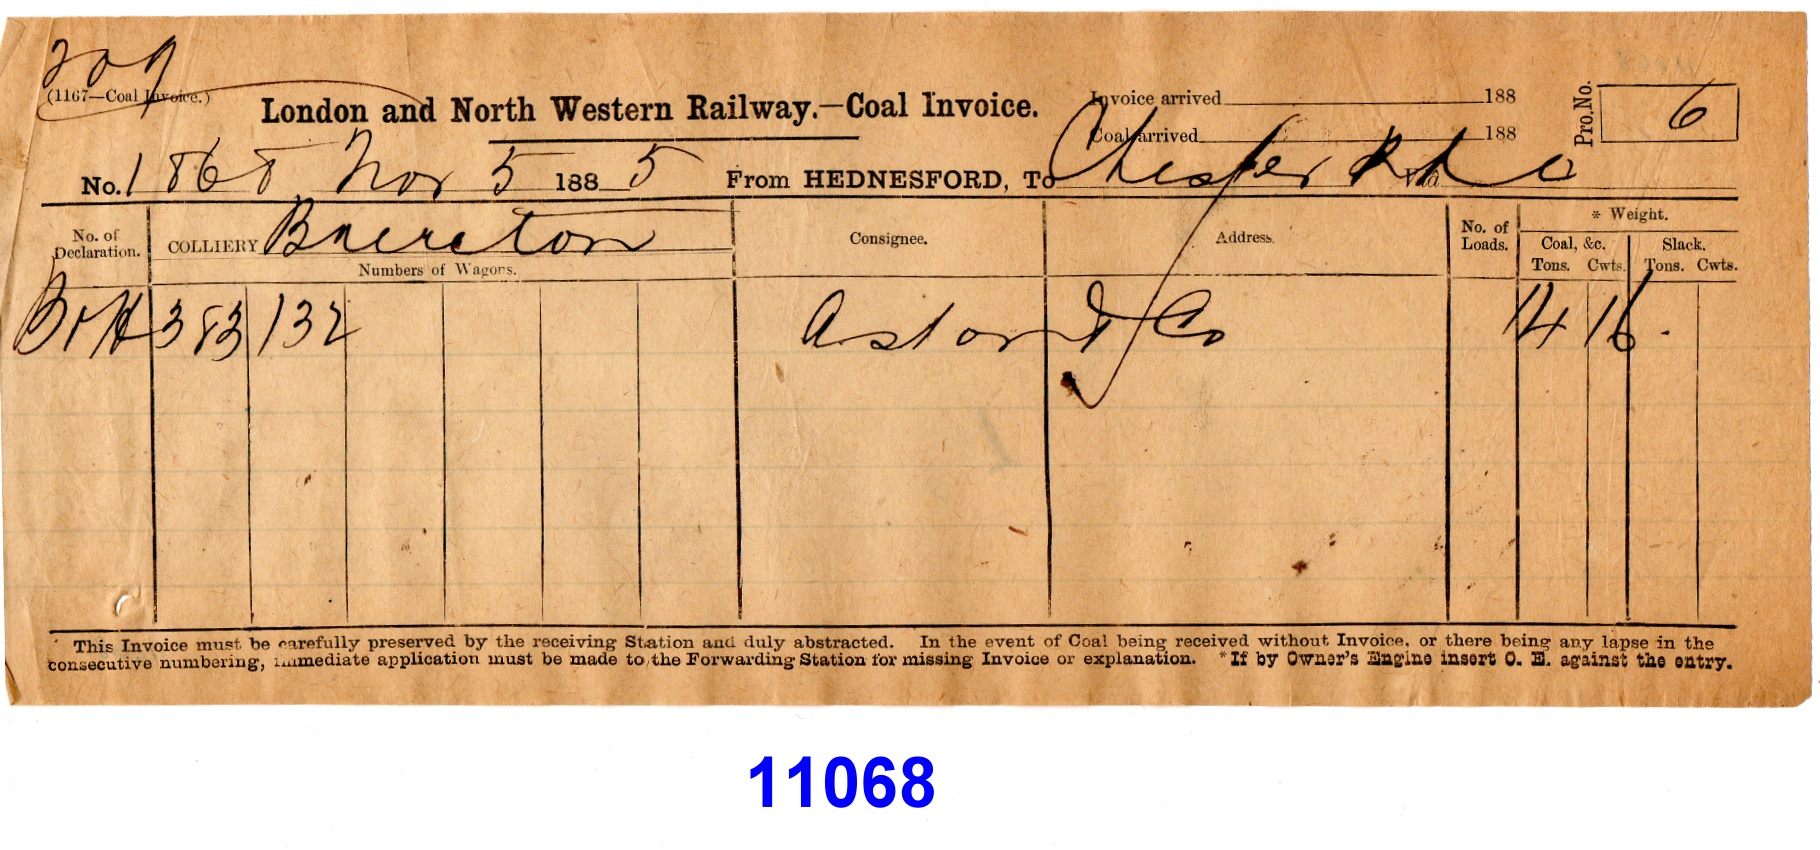 209
(1167—Coal Invoice.)
London and North Western Railway.—Coal Invoice.
Invoice arrived 188
Coal arrived 188
Pro. No. 6
No. 1868 Nov 5 188 5 From HEDNESFORD, To Chester Rd Viâ
No. of Declaration.
COLLIERY Brereton
Numbers of Wagons.
Consignee.
Address.
No. of Loads.
* Weight.
Coal, &c. Slack.
Tons. Cwts. Tons. Cwts.
383 132 Aston & Co 14 16
This Invoice must be carefully preserved by the receiving Station and duly abstracted. In the event of Coal being received without Invoice, or there being any lapse in the
consecutive numbering, immediate application must be made to the Forwarding Station for missing Invoice or explanation. *If by Owner's Engine insert O. E. against the entry.
11068